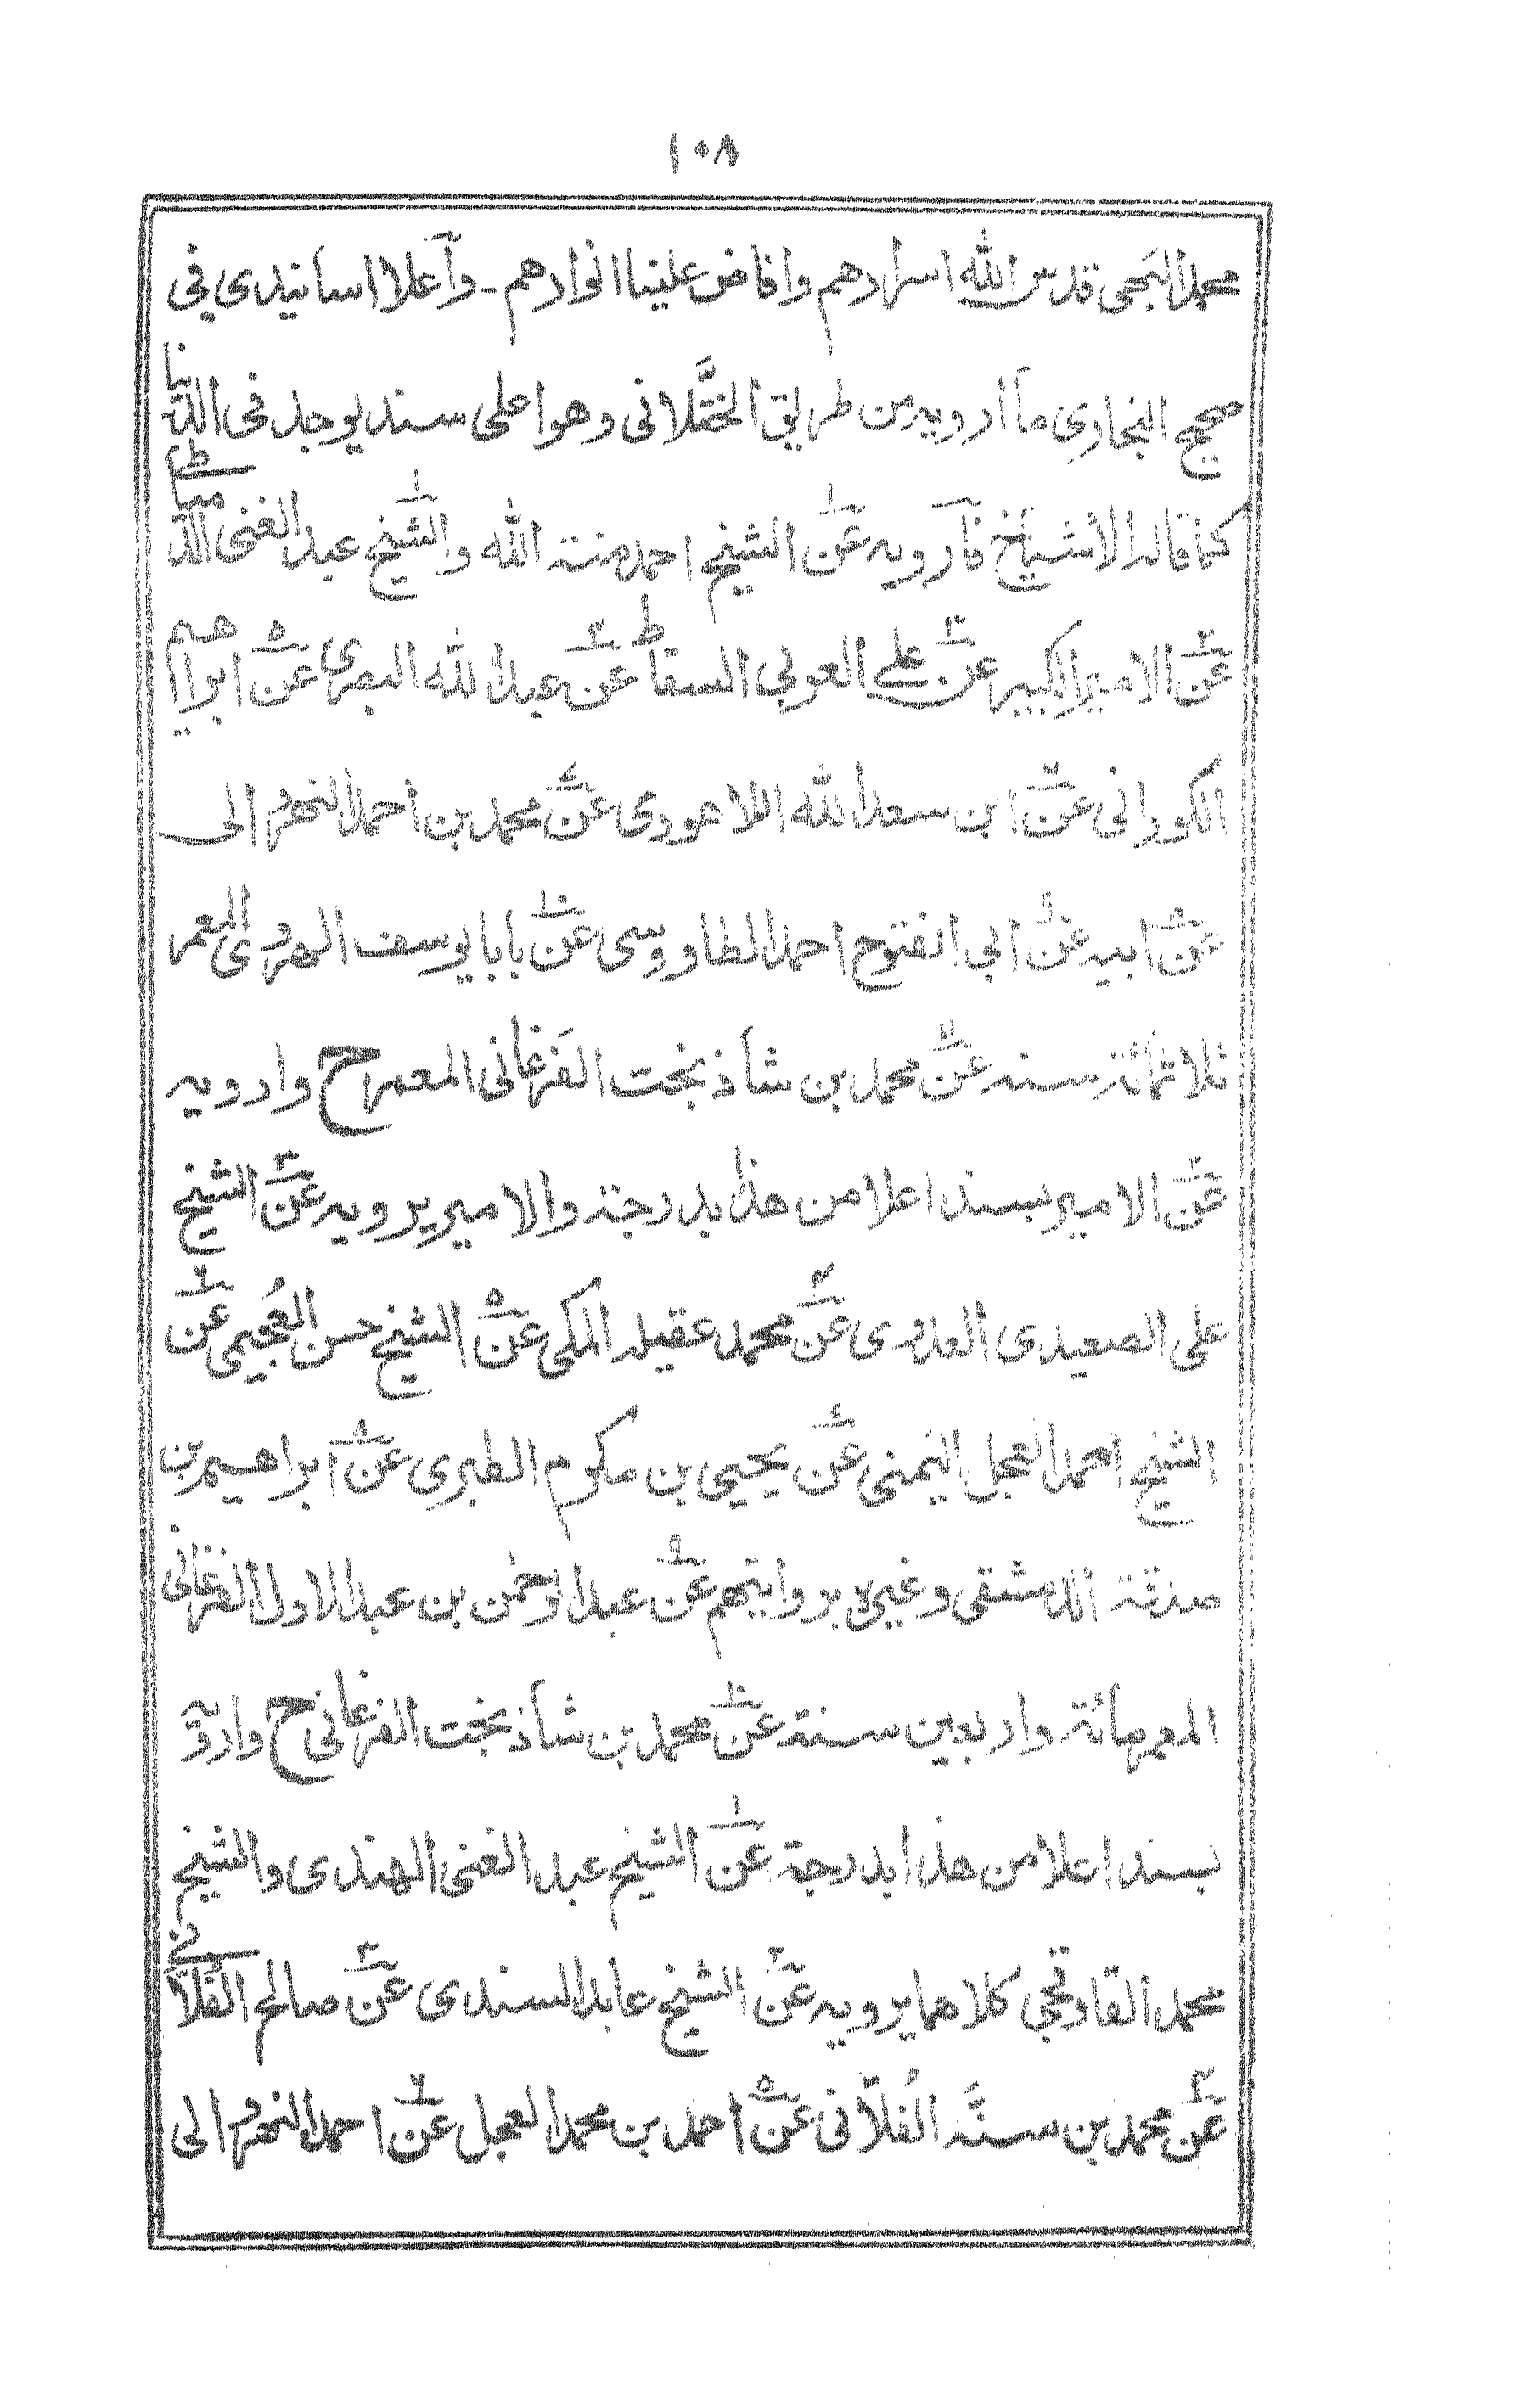 ١٠٨
محمد البَجحى قدس الله اسرارهم وافاض علينا انوارهم ـ وأعلا اسانيدى في
صحيح البخارى ما ارويه من طريق الختّلانى وهو اعلى سند يوجد فى الدنيا
كما قاله الاشياخ فأرويه عن١ الشيخ احمد منة الله و١الشيخ عبد الغنى الدمياطى
عن٢ الامير الكبير عن٣ على العربي السقاط عن٤ عبد الله البصرى عن٥ ابراهيم
الكورانى عن٦ ابن سعد الله اللاهورى عن٧ محمد بن احمد النهروالى
عن٨ ابيه عن٩ ابي الفتوح احمد الطاووسى عن١٠ بابا يوسف الهروى المعمر
ثلاثمائة سنه عن١١ محمد بن شاذ بخت الفَرغانى المعمر ح وارويه
عن٢ الامير بسند اعلا من هذا بدرجة والامير يرويه عن٣ الشيخ
على الصعيدى العدوى عن٤ محمد عقيله المكى عن٥ الشيخ حسن العُجيمى عن٦
الشيخ احمد العجل اليمنى عن٧ يحيى بن مكرم الطبرى عن٨ ابراهيم بن
صدقة الدمشقى وغيره بروايتهم عن٩ عبد الرحمٰن بن عبد الاول الفرغانى
المعمر مائة واربعين سنة عن١٠ محمد بن شاذ بخت الفرغانى ح وارويه
بسند اعلا من هذا بدرجة عن١ الشيخ عبد الغنى الهندى والشيخ
محمد القاوقجي كلاهما يرويه عن٢ الشيخ عابد السندى عن٣ صالح الفُلاّنى
عن٤ محمد بن سنَّه الفُلاّنى عن٥ احمد بن محمد العجل عن٦ احمد النهروالى